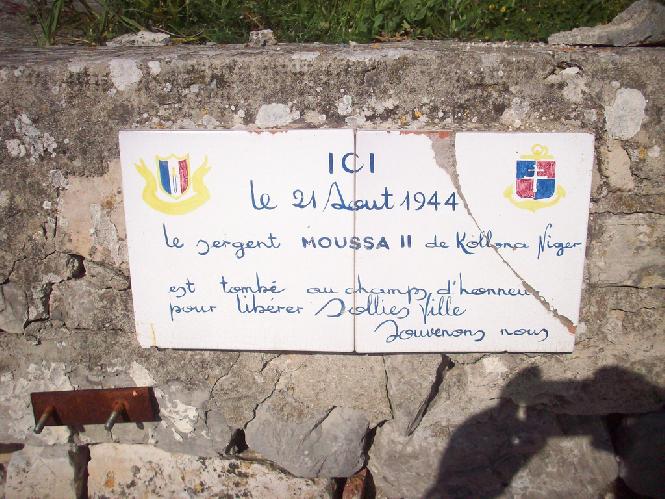 ICI
le 21 Aout 1944
le sergent MOUSSA II de Kollona Niger
est tombé au champs d'honneu
pour libérer Sollies Ville
Souvenons nous